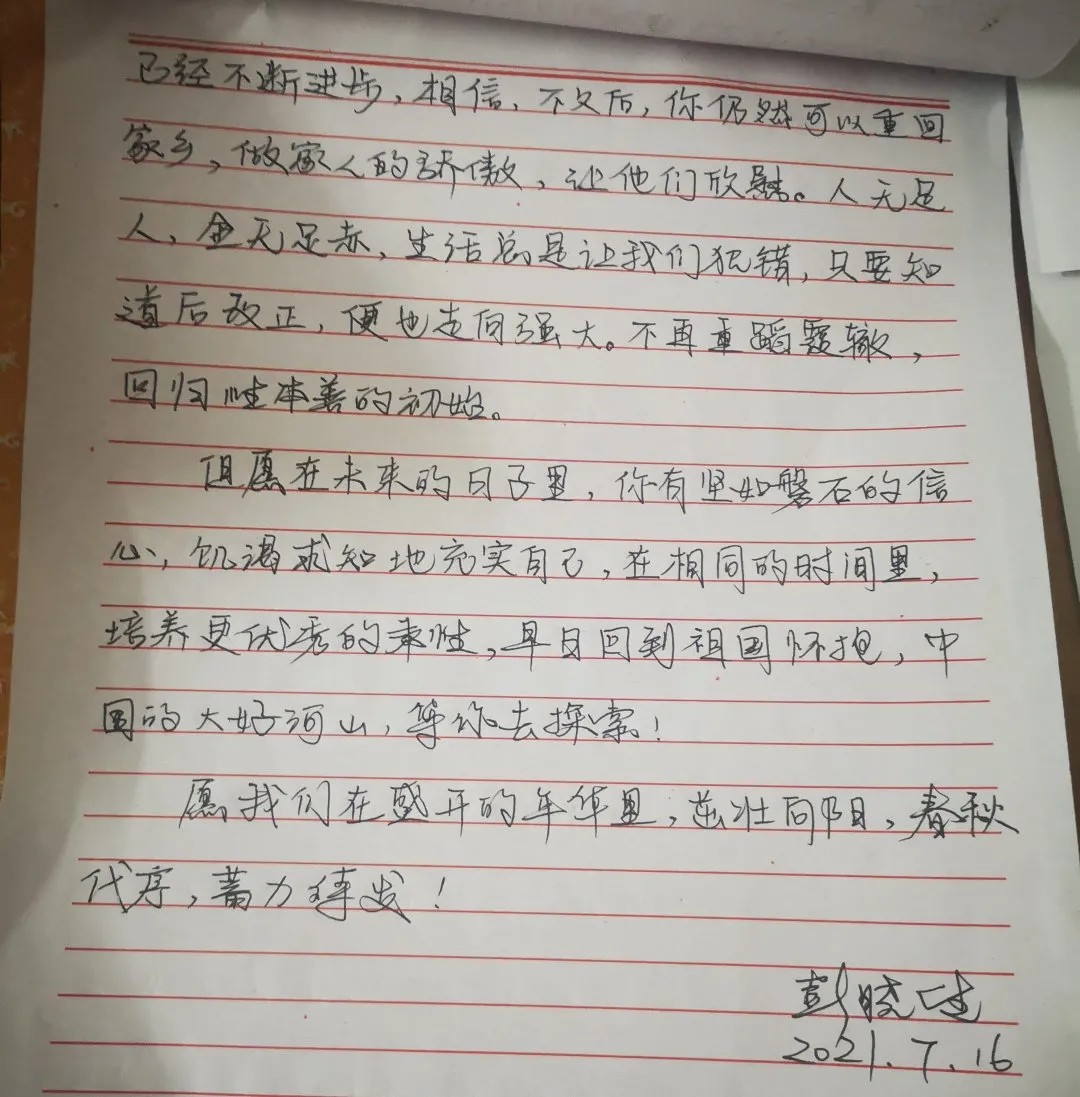 已经不断进步，相信，不久后，你仍然可以重回
家乡，做家人的骄傲，让他们欣慰。人无足
人，金无足赤，生活总是让我们犯错，只要知
道后改正，便也走向强大。不再重蹈覆辙，
回归性本善的初始。
但愿在未来的日子里，你有坚如磐石的信
心，饥渴求知地充实自己，在相同的时间里，
培养更优秀的秉性，早日回到祖国怀抱，中
国的大好河山，等你去探索！
愿我们在盛开的年华里，茁壮向阳，春秋
代序，蓄力待发！
彭晓
2021.7.16